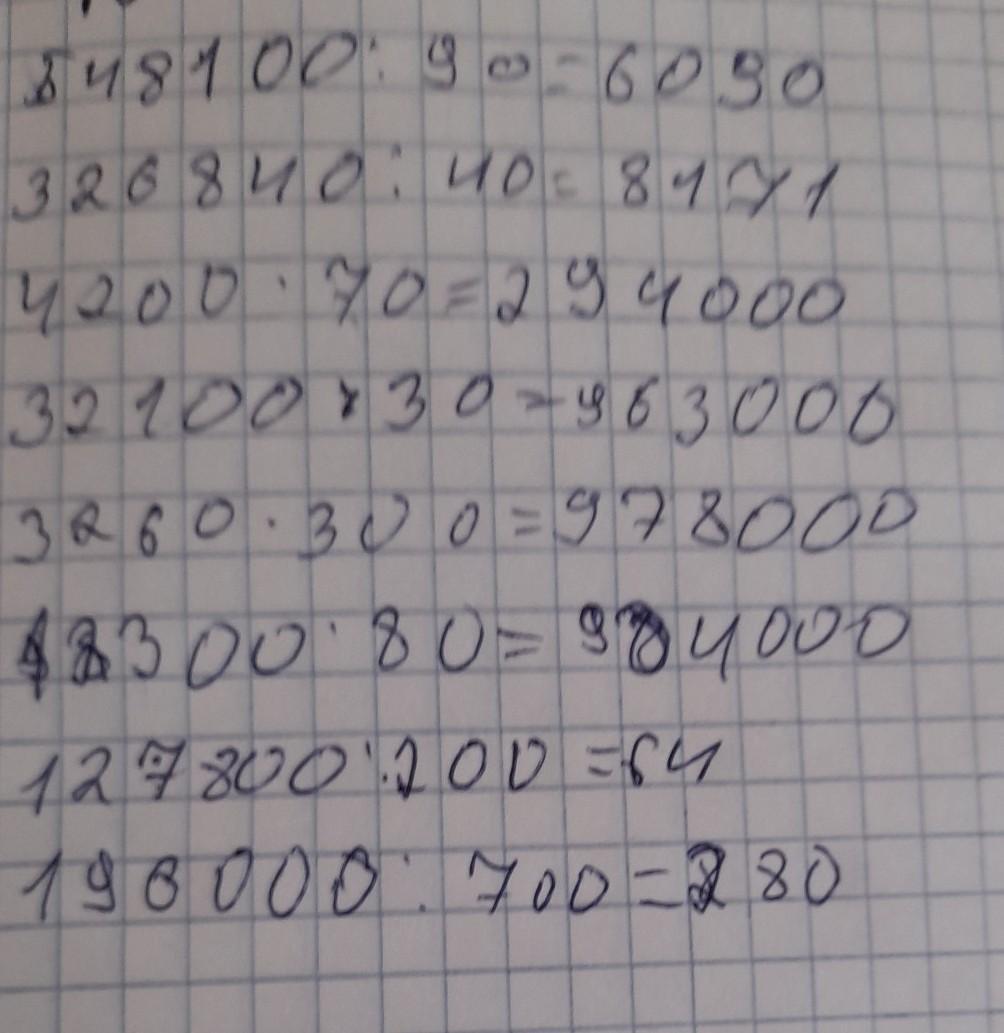 548100 : 90 = 6090
326840 : 40 = 8171
4200 · 70 = 294000
32100 · 30 = 963000
3260 · 300 = 978000
12300 · 80 = 984000
127800 : 200 = 64
196000 : 700 = 280